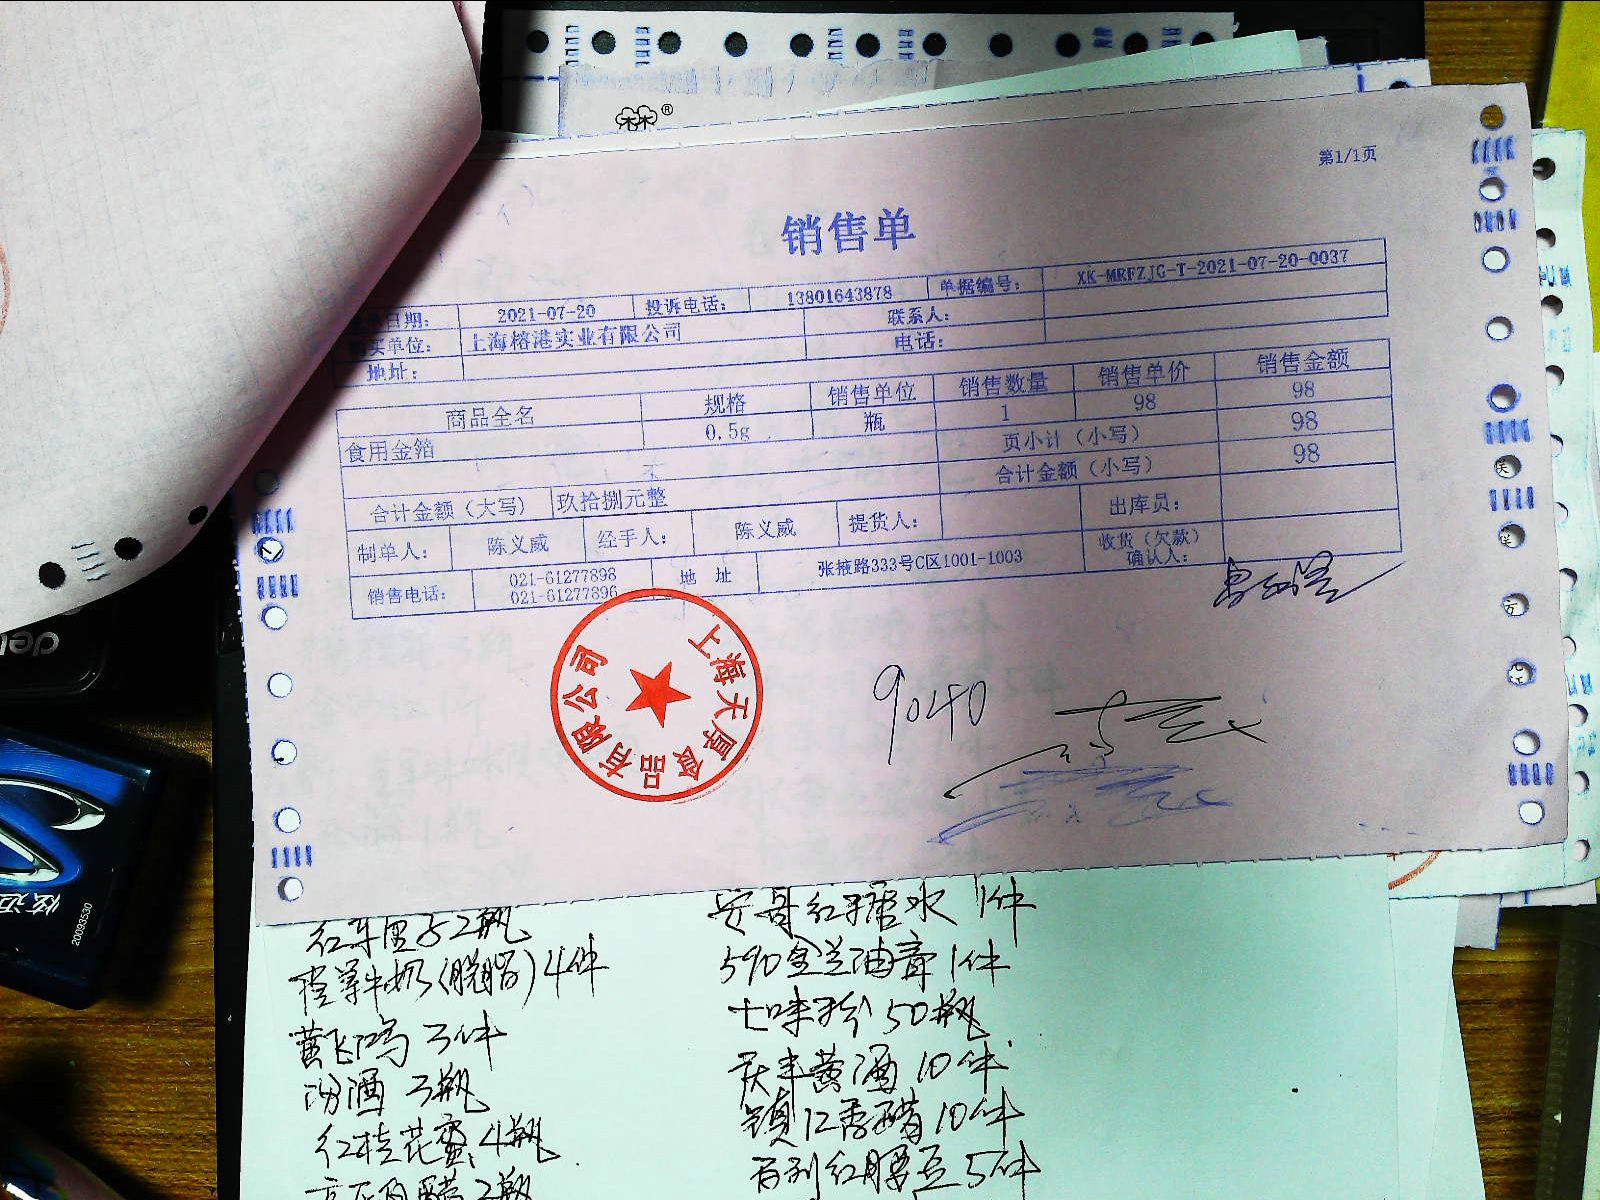 林林®
第1/1页
销售单
日期： 2021-07-20 投诉电话： 13801643878 单据编号： XK-MRFZJG-T-2021-07-20-0037
买单位： 上海榕港实业有限公司 联系人：
地址： 电话：
商品全名 规格 销售单位 销售数量 销售单价 销售金额
食用金箔 0.5g 瓶 1 98 98
页小计（小写） 98
合计金额（小写） 98
合计金额（大写） 玖拾捌元整
制单人： 陈义威 经手人： 陈义威 提货人： 出库员：
销售电话： 021-61277898 021-61277896 地 址 张掖路333号C区1001-1003 收货（欠款）确认人：
上海天厚食品有限公司
9040
红车厘子2瓶
牛奶(脱脂)4件
黄飞鸿 3件
汾酒 3瓶
红桂花蜜 4瓶
2瓶
安哥红糖水 1件
590金兰油膏 1件
七味粉 50瓶
黄酒 10件
镇江香醋 10件
百利红腰豆 5件
deli
炫迈
20093530